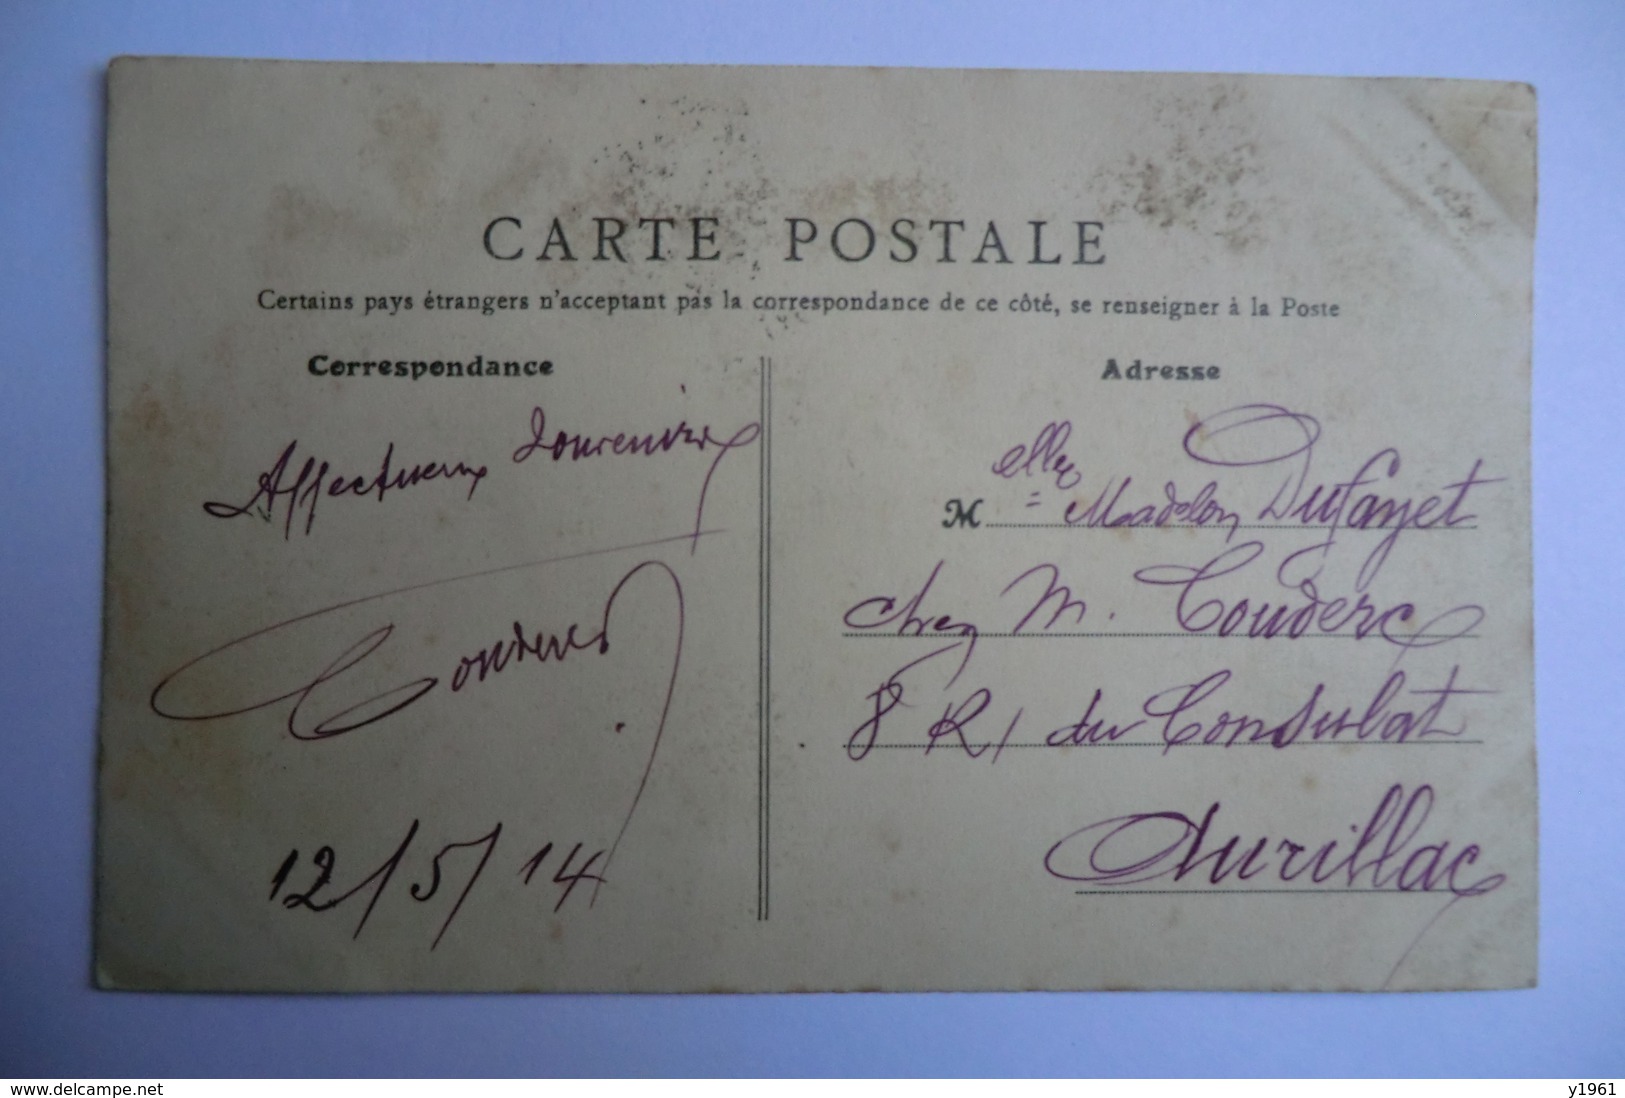 CARTE POSTALE
Certains pays étrangers n'acceptant pas la correspondance de ce côté, se renseigner à la Poste
Correspondance
Affectueux souvenir
Couderc
12/5/14
Adresse
Melle Madelon Dufayet
chez M. Couderc
8 R. du Consulat
Aurillac
delcampe.net
y1961